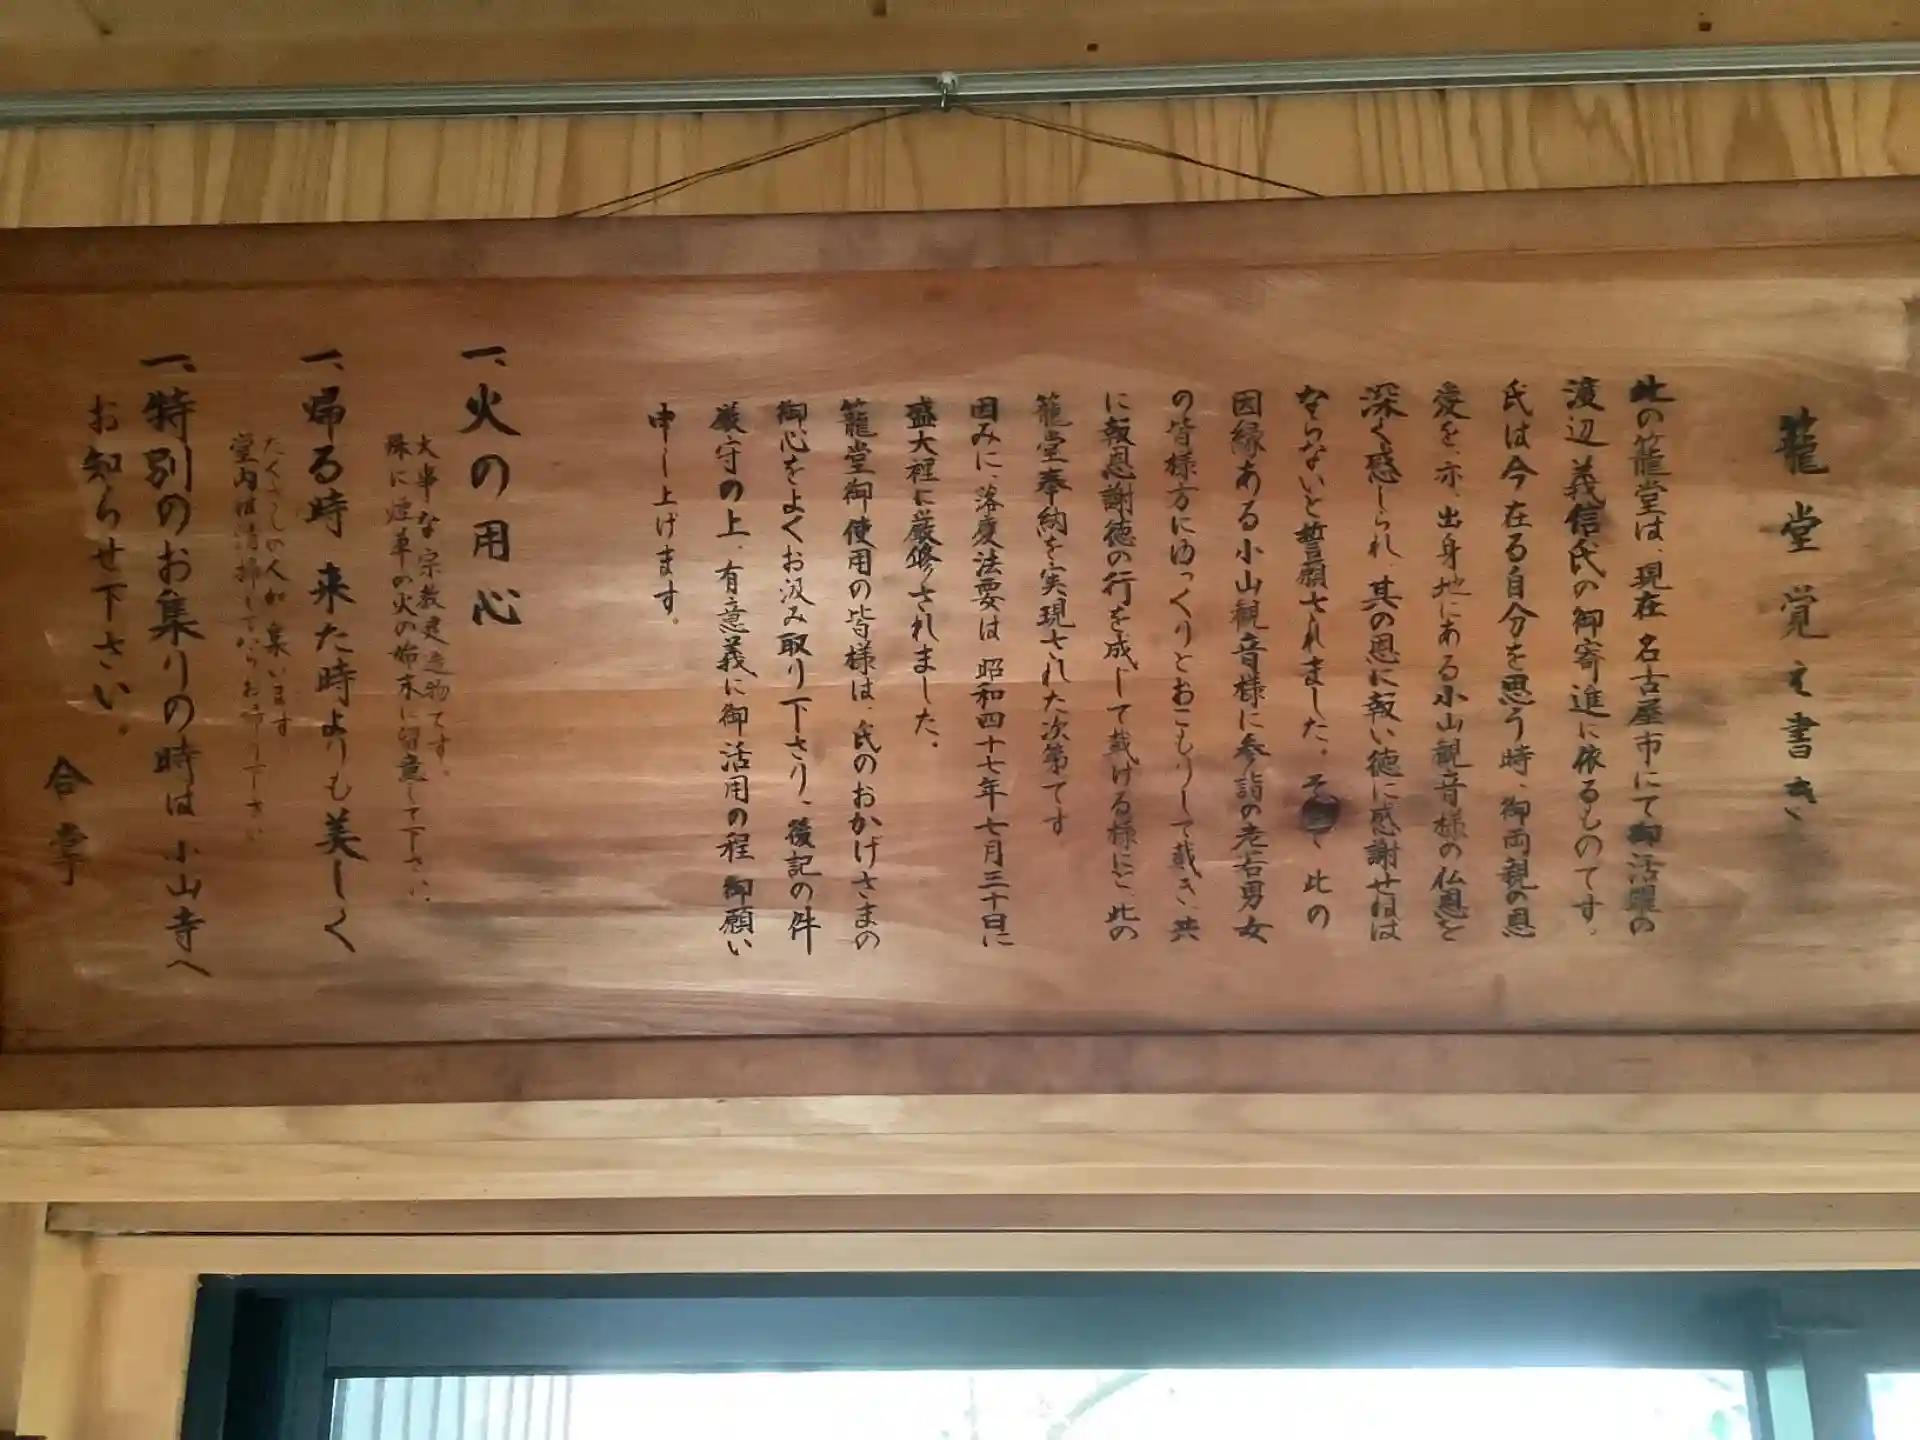 籠堂覚え書き
此の籠堂は、現在 名古屋市にて御活躍の
渡辺義信氏の御寄進に依るものです。
氏は今在る自分を思う時、御両親の恩
愛を、亦、出身地にある小山観音様の仏恩を
深く感じられ、其の恩に報い徳に感謝せねば
ならないと誓願されました。そして、此の
因縁ある小山観音様に参詣の老若男女
の皆様方にゆっくりとおこもりして戴き、共
に報恩謝徳の行を成して戴ける様にと、此の
籠堂奉納を実現された次第です
因みに、落慶法要は 昭和四十七年七月三十日に
盛大裡に厳修されました。
籠堂御使用の皆様は、氏のおかげさまの
御心をよくお汲み取り下さり、後記の件
厳守の上、有意義に御活用の程 御願い
申し上げます。
一、火の用心
大事な宗教建造物です。
殊に煙草の火の始末に留意して下さい。
一、帰る時 来た時よりも美しく
たくさんの人が集います
堂内は清掃してからお帰り下さい
一、特別のお集りの時は小山寺へ
お知らせ下さい。
合掌